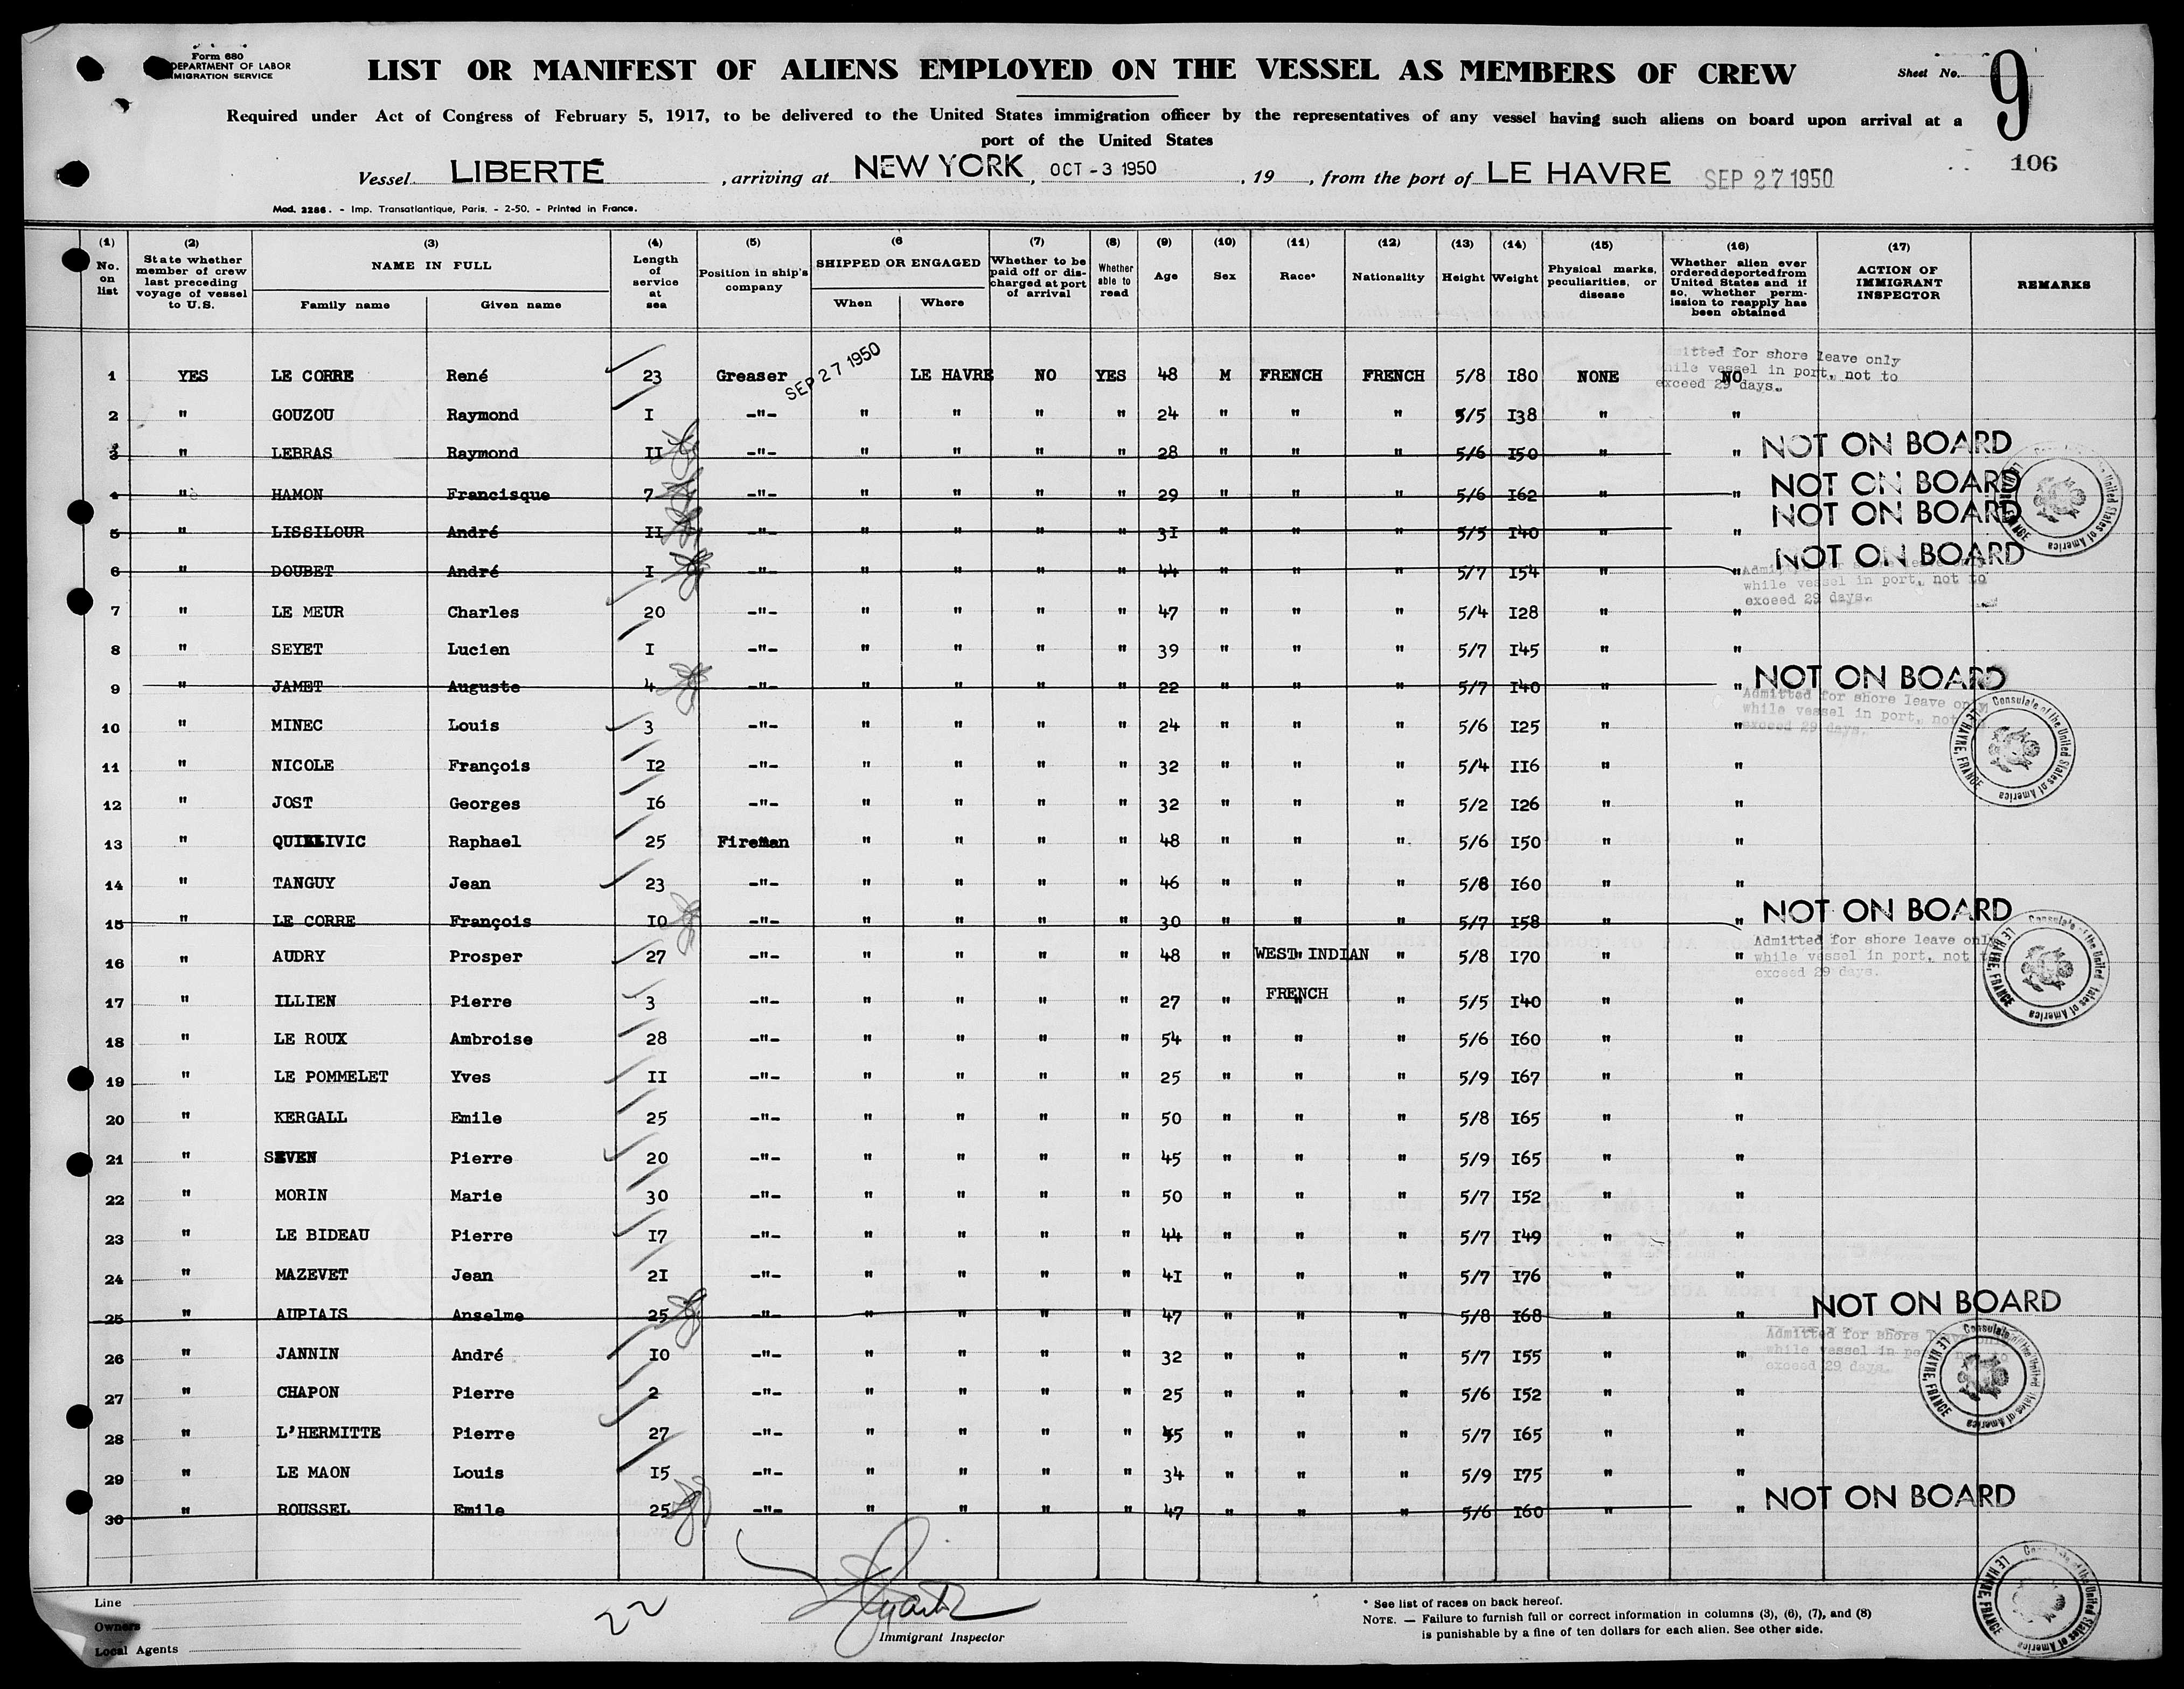 Form 680
DEPARTMENT OF LABOR
MIGRATION SERVICE
LIST OR MANIFEST OF ALIENS EMPLOYED ON THE VESSEL AS MEMBERS OF CREW
Sheet No. 9
Required under Act of Congress of February 5, 1917, to be delivered to the United States immigration officer by the representatives of any vessel having such aliens on board upon arrival at a
port of the United States
106
Vessel LIBERTÉ , arriving at NEW YORK , OCT - 3 1950 , 19 , from the port of LE HAVRE SEP 27 1950
Mod. 2286. - Imp. Transatlantique, Paris. - 2-50. - Printed in France.
(1) No. on list (2) State whether member of crew last preceding voyage of vessel to U.S. (3) NAME IN FULL Family name Given name (4) Length of service at sea (5) Position in ship's company (6 SHIPPED OR ENGAGED When Where (7) Whether to be paid off or discharged at port of arrival (8) Whether able to read (9) Age (10) Sex (11) Race* (12) Nationality (13) Height (14) Weight (15) Physical marks, peculiarities, or disease (16) Whether alien ever ordered deported from United States and if so, whether permission to reapply has been obtained (17) ACTION OF IMMIGRANT INSPECTOR REMARKS
1 YES LE CORRE René 23 Greaser SEP 27 1950 LE HAVRE NO YES 48 M FRENCH FRENCH 5/8 I80 NONE NO
itted for shore leave only
hile vessel in port, not to
exceed 29 days.
2 " GOUZOU Raymond I -"- " " " " 24 " " " 5/5 I38 " "
3 " LEBRAS Raymond II -"- " " " " 28 " " " 5/6 I50 " " NOT ON BOARD
4 " HAMON Francisque 7 -"- " " " " 29 " " " 5/6 I62 " " NOT ON BOARD
5 " LISSILOUR André II -"- " " " " 3I " " " 5/5 I40 " " NOT ON BOARD
6 " DOUBET André I -"- " " " " 44 " " " 5/7 I54 " " NOT ON BOARD
while vessel in port, not to
exceed 29 days.
7 " LE MEUR Charles 20 -"- " " " " 47 " " " 5/4 I28 " "
8 " SEYET Lucien I -"- " " " " 39 " " " 5/7 I45 " "
9 " JAMET Auguste 4 -"- " " " " 22 " " " 5/7 I40 " " NOT ON BOARD
Admitted for shore leave only
while vessel in port, not
exceed 29 days.
10 " MINEC Louis 3 -"- " " " " 24 " " " 5/6 I25 " "
11 " NICOLE François I2 -"- " " " " 32 " " " 5/4 II6 " "
12 " JOST Georges I6 -"- " " " " 32 " " " 5/2 I26 " "
13 " QUILLIVIC Raphael 25 Fireman " " " " 48 " " " 5/6 I50 " "
14 " TANGUY Jean 23 -"- " " " " 46 " " " 5/8 I60 " "
15 " LE CORRE François I0 -"- " " " " 30 " " " 5/7 I58 " " NOT ON BOARD
Admitted for shore leave only
while vessel in port, not
exceed 29 days.
16 " AUDRY Prosper 27 -"- " " " " 48 " WEST INDIAN " 5/8 I70 " "
17 " ILLIEN Pierre 3 -"- " " " " 27 " FRENCH " 5/5 I40 " "
18 " LE ROUX Ambroise 28 -"- " " " " 54 " " " 5/6 I60 " "
19 " LE POMMELET Yves II -"- " " " " 25 " " " 5/9 I67 " "
20 " KERGALL Emile 25 -"- " " " " 50 " " " 5/8 I65 " "
21 " SEVEN Pierre 20 -"- " " " " 45 " " " 5/9 I65 " "
22 " MORIN Marie 30 -"- " " " " 50 " " " 5/7 I52 " "
23 " LE BIDEAU Pierre I7 -"- " " " " 44 " " " 5/7 I49 " "
24 " MAZEVET Jean 2I -"- " " " " 4I " " " 5/7 I76 " "
25 " AUPIAIS Anselme 25 -"- " " " " 47 " " " 5/8 I68 " " NOT ON BOARD
Admitted for shore
while vessel in
exceed 29 days.
26 " JANNIN André I0 -"- " " " " 32 " " " 5/7 I55 " "
27 " CHAPON Pierre 2 -"- " " " " 25 " " " 5/6 I52 " "
28 " L'HERMITTE Pierre 27 -"- " " " " 45 " " " 5/7 I65 " "
29 " LE MAON Louis I5 -"- " " " " 34 " " " 5/9 I75 " "
30 " ROUSSEL Emile 25 -"- " " " " 47 " " " 5/6 I60 " " NOT ON BOARD
Consulate of the United States of America LE HAVRE, FRANCE
Line
Owners
Local Agents
22
Immigrant Inspector
* See list of races on back hereof.
NOTE. — Failure to furnish full or correct information in columns (3), (6), (7), and (8)
is punishable by a fine of ten dollars for each alien. See other side.